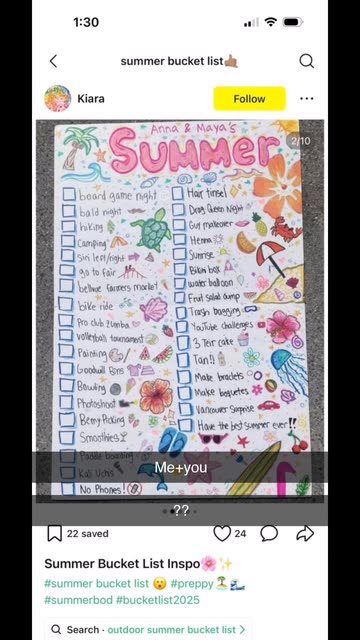 1:30
summer bucket list🤙🏽
Kiara
Follow
2/10
Anna & Maya's
SUMMER
board game night
bald night
hiking
Camping
Siri left/right
go to fair
bellvue farmers market
bike ride
Pro club Zumba
volleyball tournament
Painting
Goodwill Bins
Bowling
Photoshoot
Berry Picking
Smoothies
Paddle boarding
Kali Uchis
No Phones!
Hair tinsel
Drag Queen Night
Guy makeover
Henna
Sunrise
Bikini box
water balloon
Fruit salad dump
Trash bagging
YouTube challenges
3 Tier cake
Tan!!
Make braclets
Make boquetes
Vancouver Surprise
Have the best summer ever!!
Me+you
??
22 saved
24
Summer Bucket List Inspo🌺✨
#summer bucket list 😮 #preppy🏝️🌊
#summerbod #bucketlist2025
Search · outdoor summer bucket list >